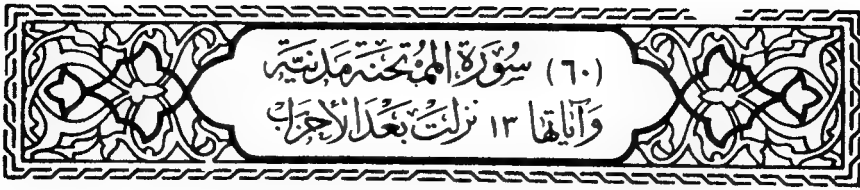 (٦٠) سُورَةُ المُمْتَحِنَةِ مَدَنِيَّة
وَآيَاتُهَا ١٣ نَزَلَتْ بَعْدَ الأَحْزَابِ